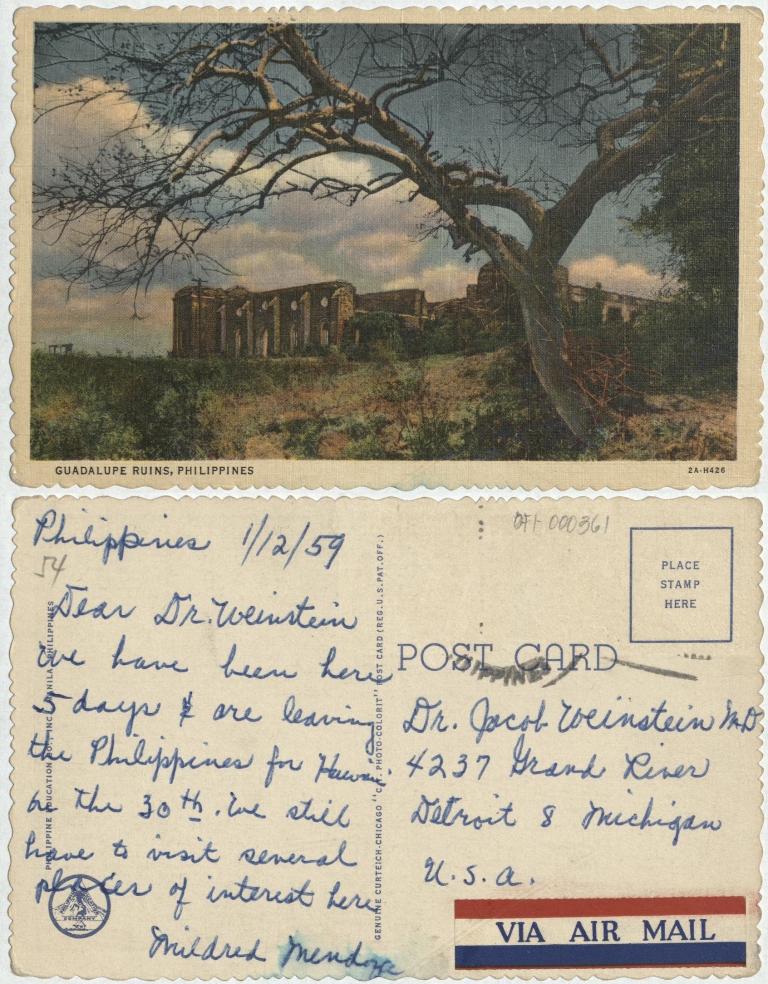 GUADALUPE RUINS, PHILIPPINES
2A-H426
Philippines 1/12/59
54
Dear Dr. Weinstein
We have been here
5 days & are leaving
the Philippines for Hawaii
on the 30th. We still
have to visit several
places of interest here
Mildred Mendoza
PHILIPPINE EDUCATION CO., INC., MANILA, PHILIPPINES
GENUINE CURTEICH-CHICAGO "C.T. PHOTO-COLORIT" POST CARD (REG. U.S. PAT. OFF.)
000361
PLACE
STAMP
HERE
POST CARD
Dr. Jacob Weinstein M.D
4237 Grand River
Detroit 8 Michigan
U.S.A.
VIA AIR MAIL